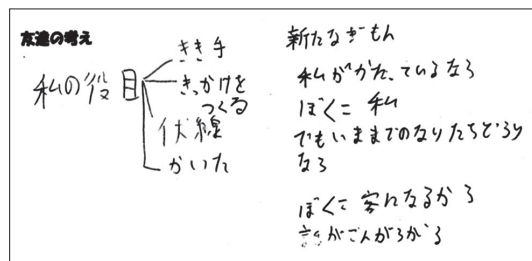 友達の考え
私の役目
きき手
きっかけを
つくる
伏線
かいた
新たなぎもん
私がかたっているなら
ぼく＝私
でもいままでのなりたちどうり
なら
ぼく＝客になるから
話がこんがらがる